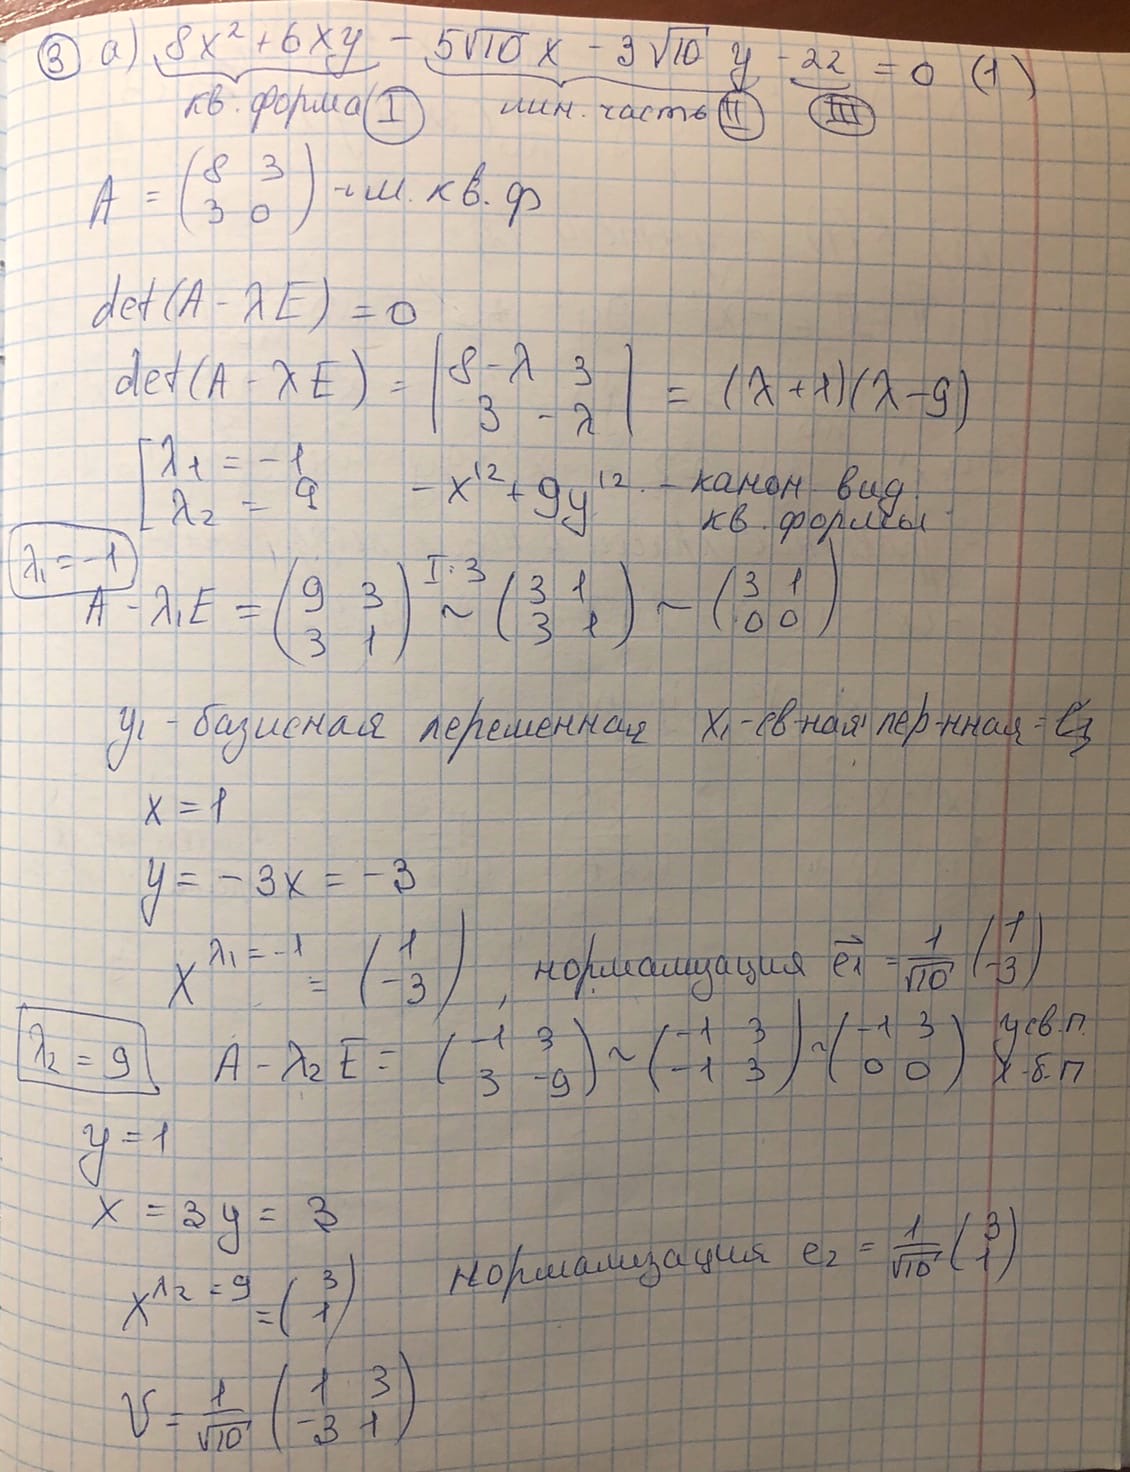 ③ а) 8x² + 6xy - 5√10 x - 3√10 y - 22 = 0 (1)
кв. форма Ⅰ лин. часть Ⅱ Ⅲ
A = (8 3; 3 0) - м. кв. ф
det(A - λE) = 0
det(A - λE) = |8-λ 3; 3 -λ| = (λ+1)(λ-9)
[λ₁ = -1
λ₂ = 9 -x'² + 9y'² - канон вид
кв. формы
λ₁ = -1
A - λ₁E = (9 3; 3 1) I:3 ~ (3 1; 3 1) ~ (3 1; 0 0)
y₁ - базисная переменная x₁ - св-ная пер-нная =
x = 1
y = -3x = -3
X^(λ₁ = -1) = (1; -3), нормализация e₁ = 1/√10 (1; -3)
λ₂ = 9 A - λ₂E = (-1 3; 3 -9) ~ (-1 3; -1 3) ~ (-1 3; 0 0) y св.п.
x-б.п
y = 1
x = 3y = 3
X^(λ₂ = 9) = (3; 1) нормализация e₂ = 1/√10 (3; 1)
V = 1/√10 (1 3; -3 1)